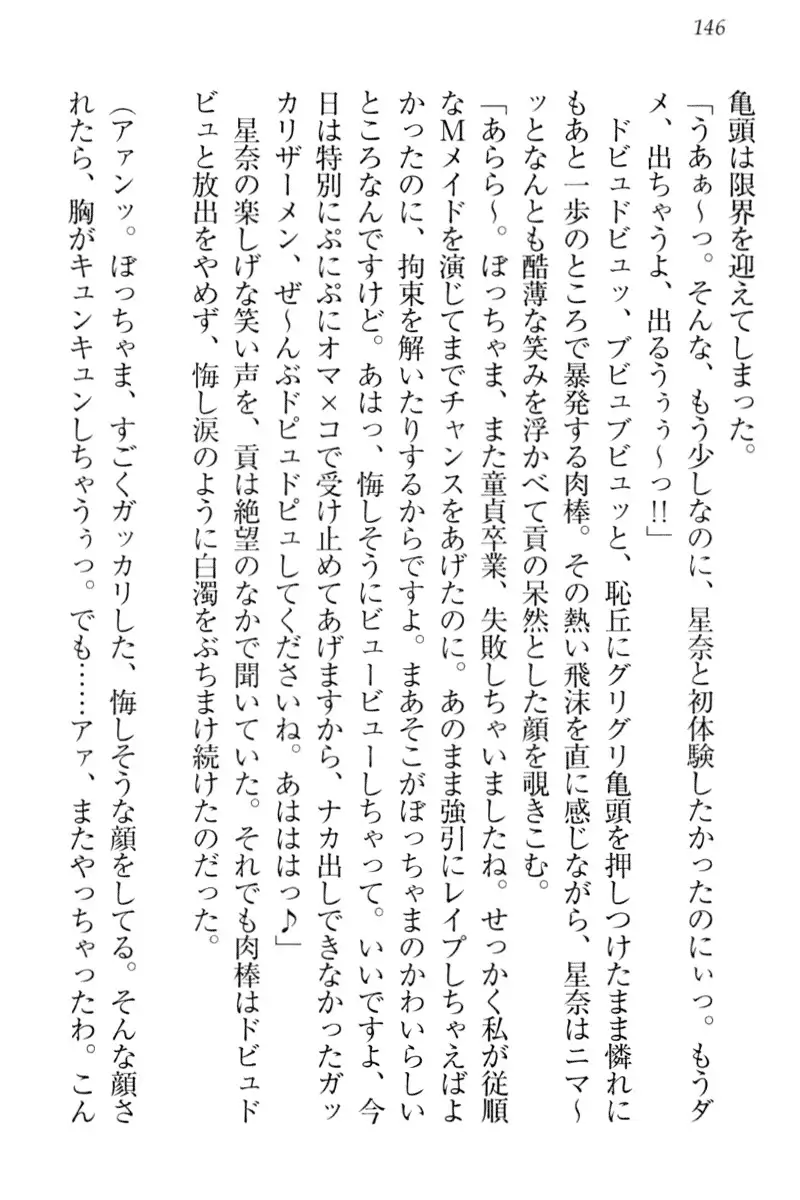 146
亀頭は限界を迎えてしまった。
「うあぁ〜っ。そんな、もう少しなのに、星奈と初体験したかったのにぃっ。もうダ
メ、出ちゃうよ、出るうぅぅ〜っ!!」
ドビュドビュッ、ブビュブビュッと、恥丘にグリグリ亀頭を押しつけたまま憐れに
もあと一歩のところで暴発する肉棒。その熱い飛沫を直に感じながら、星奈はニマ〜
ッとなんとも酷薄な笑みを浮かべて貢の呆然とした顔を覗きこむ。
「あらら〜。ぼっちゃま、また童貞卒業、失敗しちゃいましたね。せっかく私が従順
なMメイドを演じてまでチャンスをあげたのに。あのまま強引にレイプしちゃえばよ
かったのに、拘束を解いたりするからですよ。まあそこがぼっちゃまのかわいらしい
ところなんですけど。あはっ、悔しそうにビュービューしちゃって。いいですよ、今
日は特別にぷにぷにオマ×コで受け止めてあげますから、ナカ出しできなかったガッ
カリザーメン、ぜ〜んぶドピュドピュしてくださいね。あはははっ♪」
星奈の楽しげな笑い声を、貢は絶望のなかで聞いていた。それでも肉棒はドビュド
ビュと放出をやめず、悔し涙のように白濁をぶちまけ続けたのだった。
(アァンッ。ぼっちゃま、すごくガッカリした、悔しそうな顔をしてる。そんな顔さ
れたら、胸がキュンキュンしちゃうぅっ。でも……アァ、またやっちゃったわ。こん